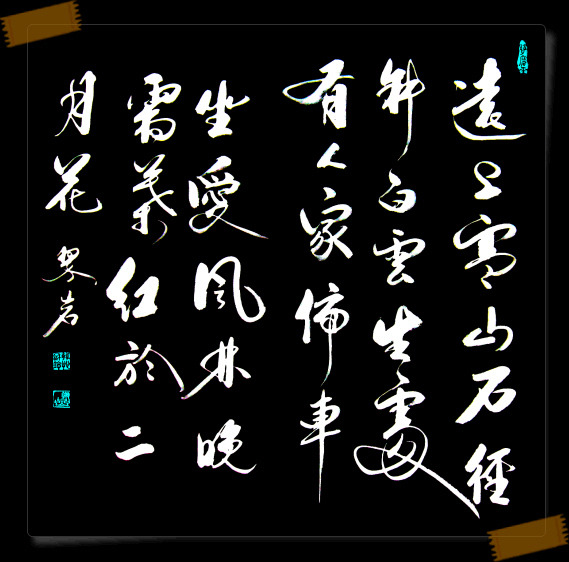 遠上寒山石徑
斜白雲生處
有人家停車
坐愛風林晚
霜葉紅於二
月花